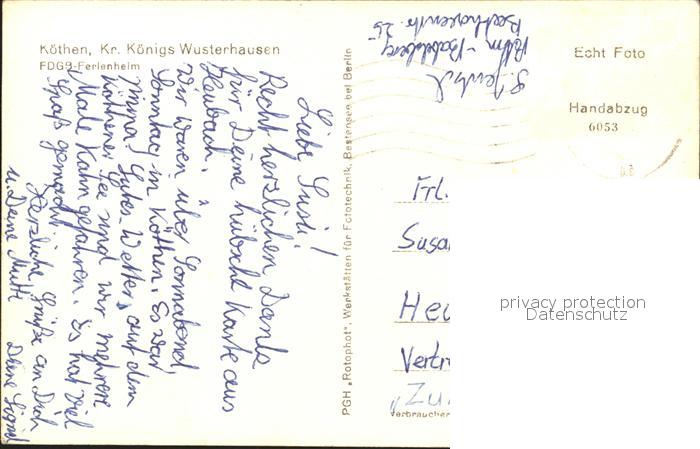 Köthen, Kr. Königs Wusterhausen
FDGB-Ferienheim
Liebe Susi!
Recht herzlichen Dank
für Deine hübsche Karte aus
Heubach.
Wir waren über Sonnabend,
Sonntag in Köthen. Es war
prima! Gutes Wetter, auf dem
Köthener See sind wir mehrere
Male Kahn gefahren. Es hat viel
Spaß gemacht.
Herzliche Grüße an Dich
u. Deine Mutti
Deine Sigrid
PGH „Rotophot", Werkstätten für Fototechnik, Bestensee bei Berlin
S.
Pdm - Babelsberg
Beethovenstr. 25
Echt Foto
Handabzug
6053
Frl.
Susa
Heu
Vertr
„Zu
Verbraucher
privacy protection
Datenschutz